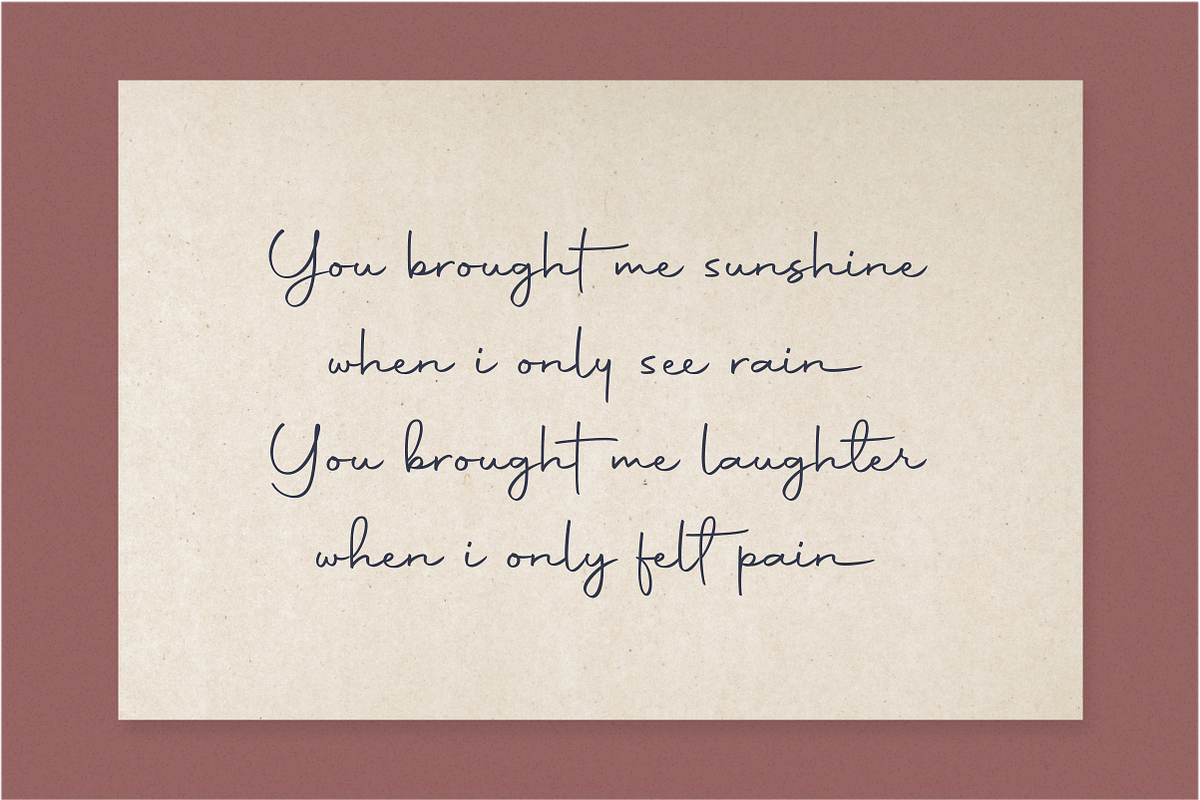 You brought me sunshine
when i only see rain
You brought me laughter
when i only felt pain